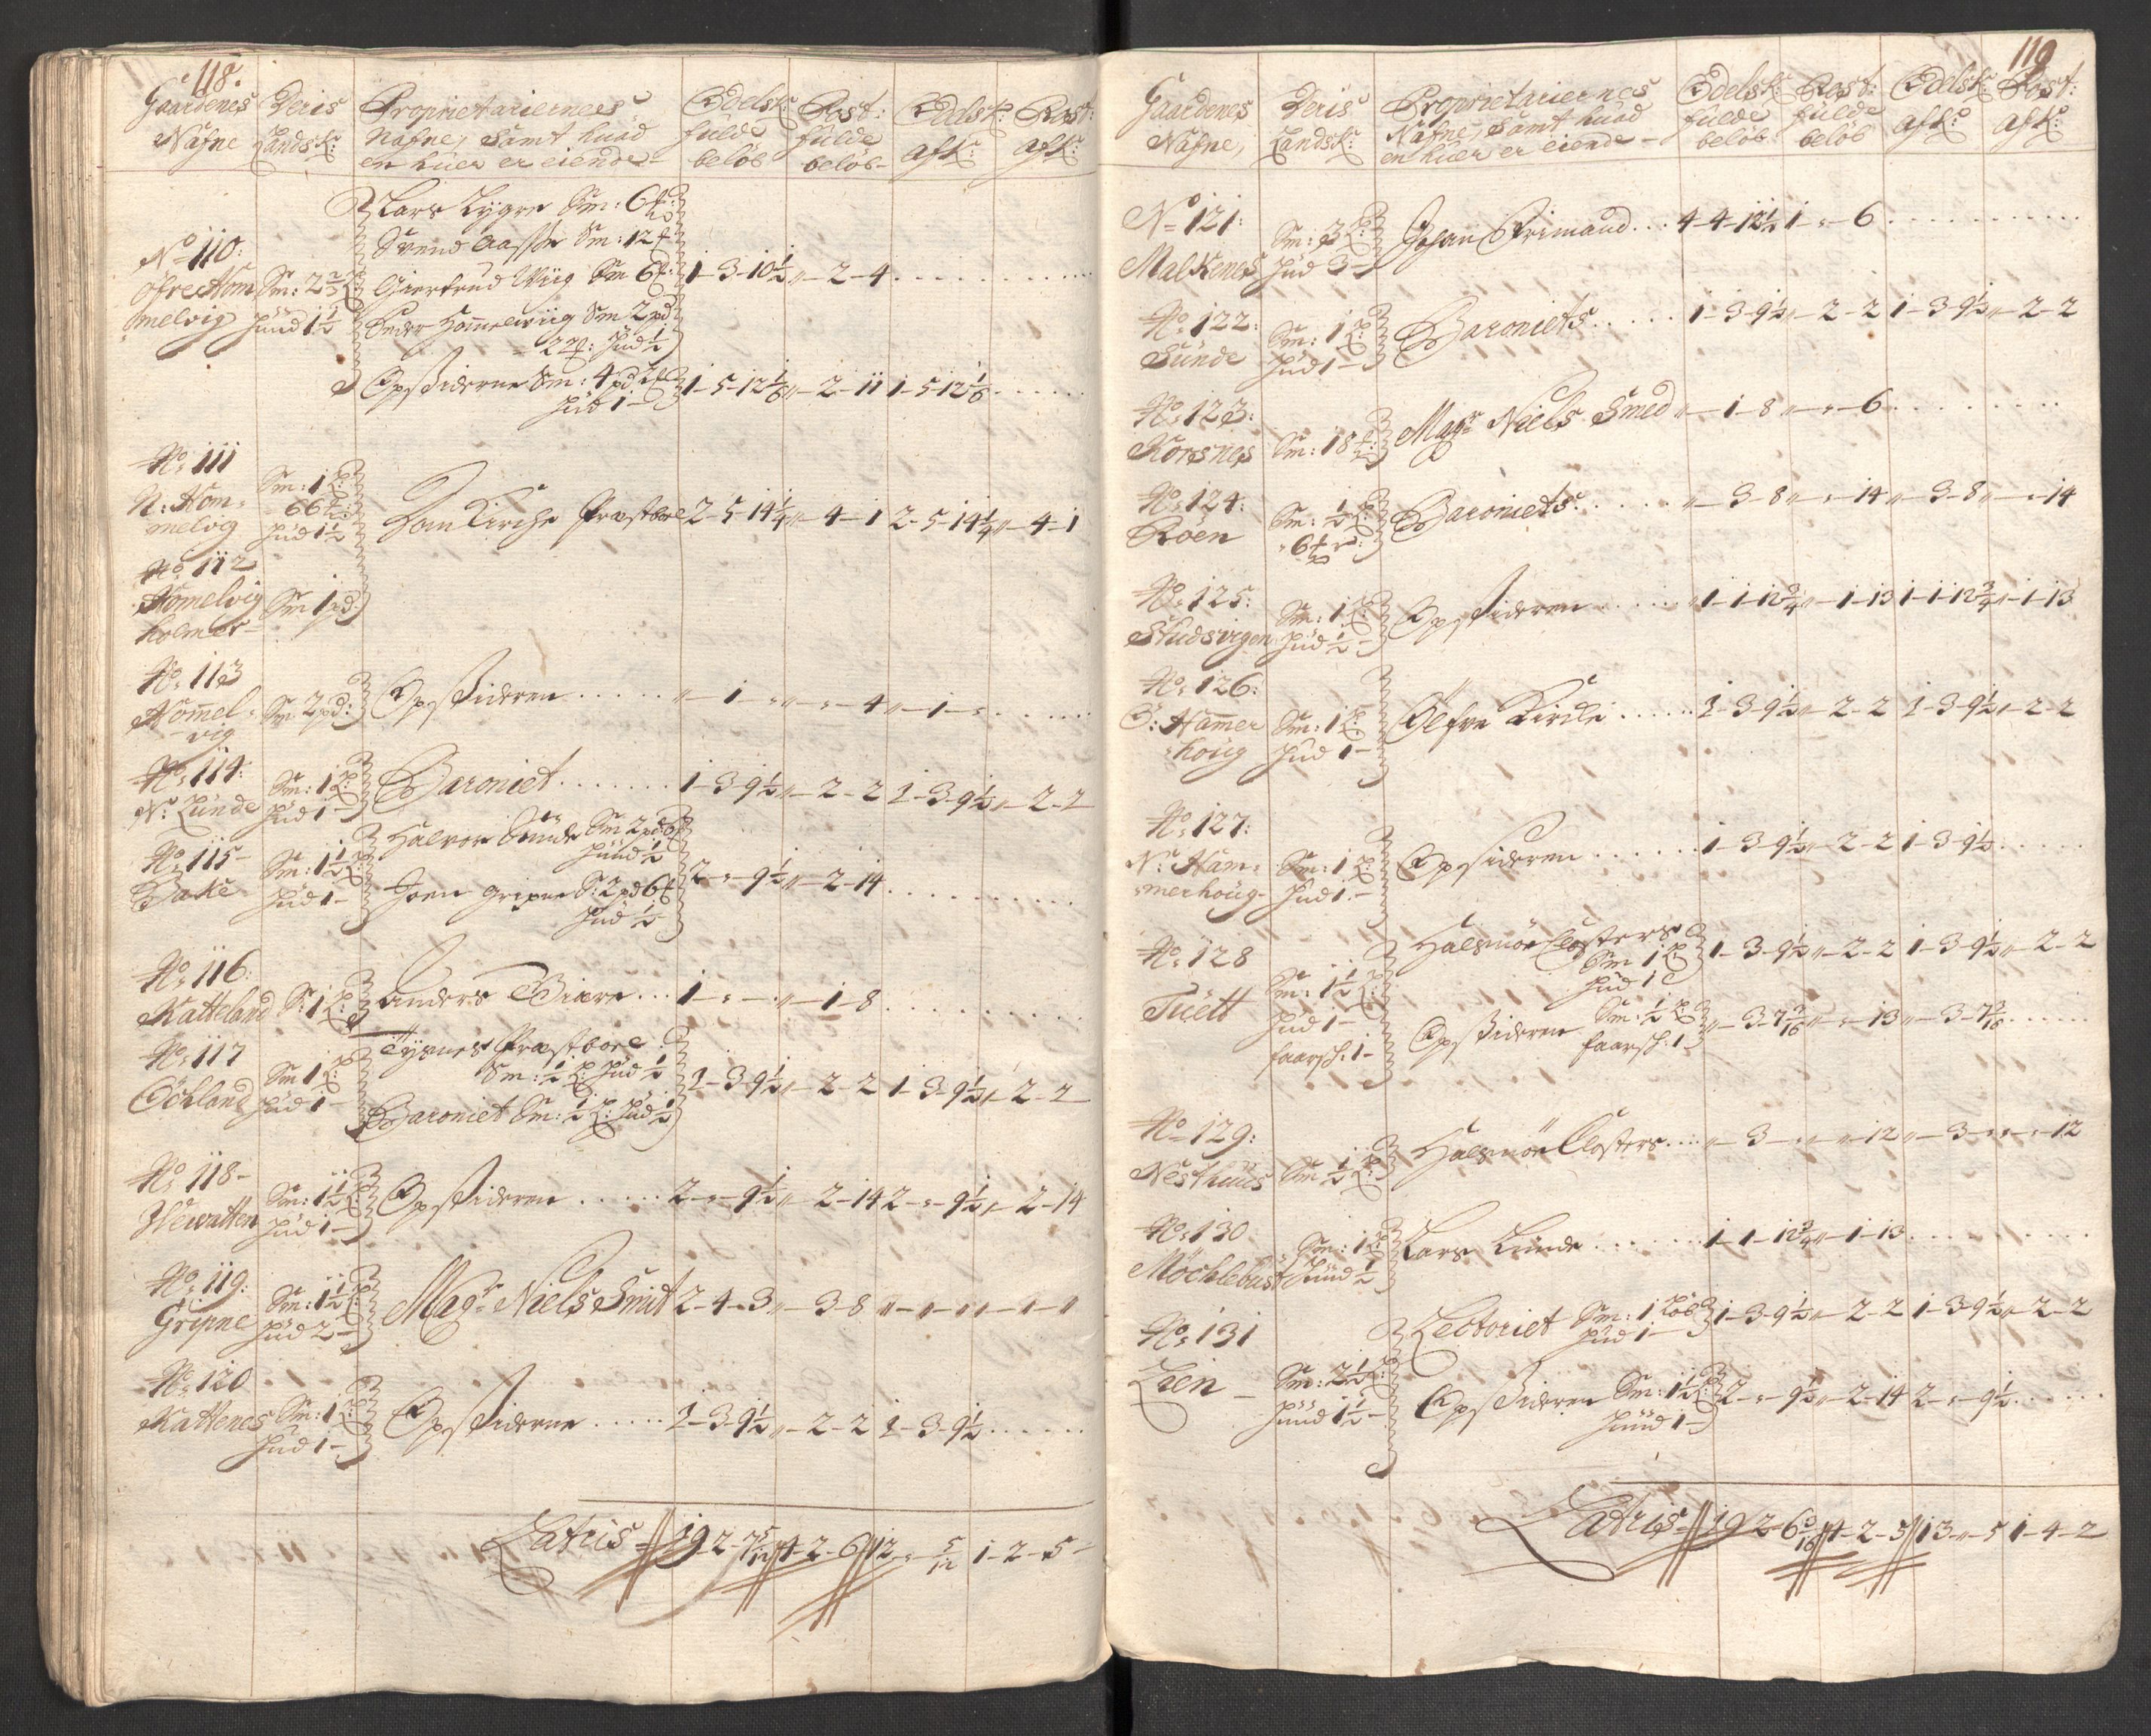 118.
Gaardenes Deris Proprietariernes Odelsk: Rost: Odelsk: Rost:
Nafne Landsk: Nafne, Samt huad fulde fulde afk: afk:
en huer er eiende beløb beløb
Lars Lygre Sm: 6
Svend Aasse Sm: 12
No 110:
Øfre Hom Sm: 2 Giertrud Wiig Sm 6 1-3-10½ „-2-4
melvig huud 1½ Peder Hommelwiig Sm 2 pd
22 : hud ½
Opsiderne Sm: 4 pd 1-5-12 „-2-11 1-5-12
hud 1-
No 111
N: Hom- Sm: 1
melvig 66 Dom Kirche Præstbole 2-5-14¼ „-4-1 2-5-14¼ „-4-1
hud 1½
No 112
Homelvig Sm 1 pd:
holmer-
No 113
Hommel- Sm: 2 pd: Opsideren „-1-„ „-„-4 „-1-„
vig
No 114: Sm: 1
N: Lunde hud 1- Baroniet 1-3-9½ „-2-2 1-3-9½ „-2-2
Halvor Sunde Sm 2 pd 6
No 115- Sm: 1½ huud ½
Bake hud 1- Joen Gripne S: 2 pd 6 2-„-9½ „-2-14
hud ½
No 116:
Katteland S: 1 Anders Biære 1-„-„ „-1-8
No 117 Tysnes Præstbole
Sm 1 Sm: ½ hud ½
Øckland hud 1- Baroniet Sm: ½ hud ½ 1-3-9½ „-2-2 1-3-9½ „-2-2
No 118- Sm: 1½
Hevatten hud 1- Opsideren 2-„-9½ „-2-14 2-„-9½ „-2-14
No 119: Sm: 1½
Gripne hud 2- Magr Niels Smit 2-4-3 „-3-8 „-„-„ „-„-„
No 120
Kattenes Sm: 1 Opsiderne 1-3-9½ „-2-2 1-3-9½
hud 1-
Lateris 19-2-7 4-2-6 12-„- 1-2-5
119
Gaardenes Deris Proprietariernes Odelsk: Rost: Odelsk: Rost:
Nafne, Landsk: Nafne, Samt huad fulde fulde afk: afk:
en huer er eiende- beløb beløb
No 121: Sm: 3
Malkenes hud 3- Johan Frimand 4-4-12½ 1-„-6
No 122: Sm: 1
Sunde hud 1- Baroniets 1-3-9½ „-2-2 1-3-9½ „-2-2
No 123:
Korsnes Sm: 18 Magr Niels Smed „-1-8 „-„-6
No 124: Sm: ½
Røen 6 Baroniets „-3-8 „-„-14 „-3-8 „-„-14
No 125: Sm: 1
Studsvigen hud ½- Opsideren 1-1-12¾ „-1-13 1-1-12¾ „-1-13
No 126:
Ø: Hammer Sm: 1 Ølfve Kirche 1-3-9½ „-2-2 1-3-9½ „-2-2
houg hud 1-
No 127:
N: Ham- Sm: 1 Opsideren 1-3-9½ „-2-2 1-3-9½
merhoug- hud 1-
No 128 Halsnøe Closters
Sm: 1½ Sm 1 1-3-9½ „-2-2 1-3-9½ „-2-2
Tuett hud 1- hud 1
faarsk: 1- Opsideren Sm: ½ „-3-7 „-„-13 „-3-7
faarsk: 1
No 129:
Nesthuus Sm ½ Halsnøe Closters „-3-„ „-„-12 „-3-„ „-„-12
No 130 Sm: 1
Møcklebust huud ½ Lars Lunde 1-1-12¾ „-1-13
No 131 Lectoriet Sm: 1 Løb 1-3-9½ „-2-2 1-3-9½ „-2-2
hud 1-
Lien - Sm: 2½ Opsideren Sm: 1½ 2-„-9½ „-2-14 2-„-9½
huud 1½- huud 1-
Lateris 19-2-6 4-2-3 13-„-5 1-4-2